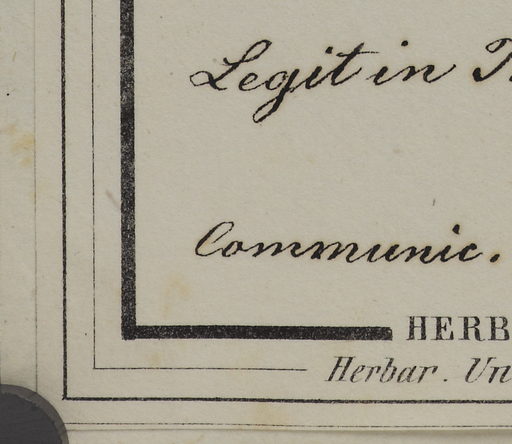 Legit in
Communic.
HERB
Herbar. Un